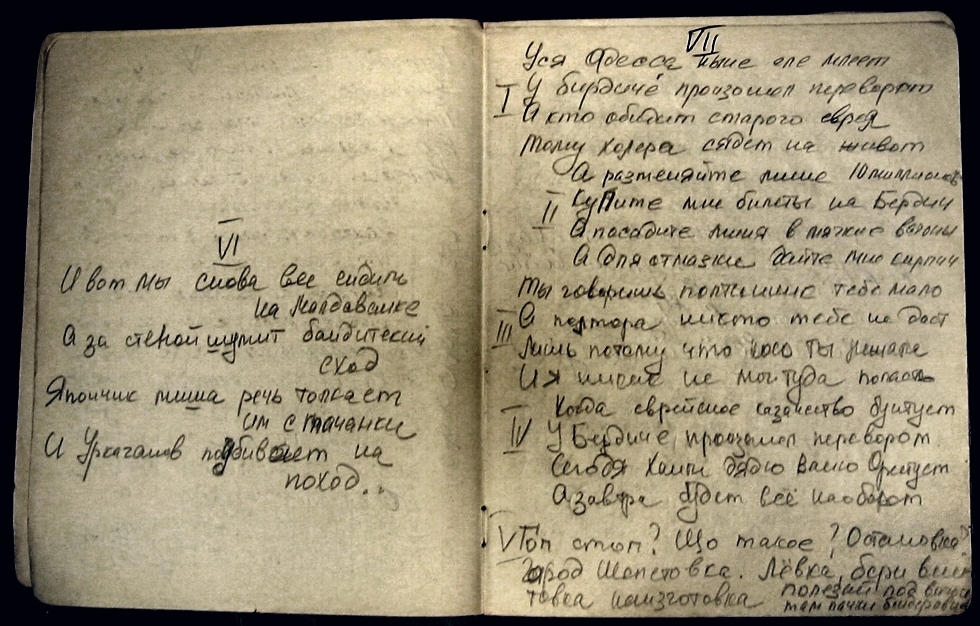 VI
И вот мы снова все сидим
на Молдаванке
А за стеной шумит бандитский
сход
Япончик миша речь толкает
им с тачанки
И Уркаганов подбивает на
поход..
VII
Уся Одесса ныне еле млеет
I У бирдиче произошел переворот
А кто обидит старого еврея
Тому холера сядет на живот
А разменяйте мине 10 миллионов
II Купите мне билеты на Бердич
А посадите миня в мягкие вагоны
А для отмазки дайте мне кирпич
Ты говоришь полтысише тебе мало
III А полтора никто тебе не даст
Лишь потому что
И я никак не могу туда попасть
Когда еврейское казачество бунтует
IV У Бердиче произошел переворот
Сегодя Хаим дядю Ваню
А завтра будет всё наоборот
V Гоп стоп? Що такое? Остановка
город Шепетовка. Лёвка, бери вин
товка наизготовка полезай под
там пачки